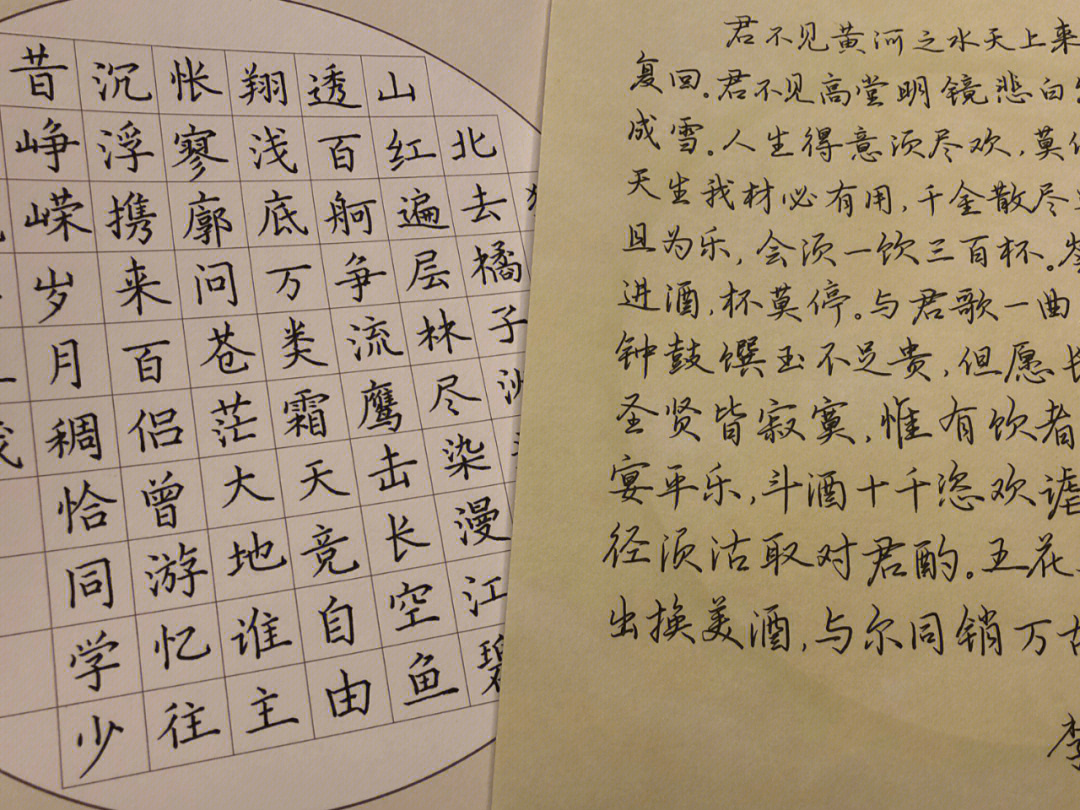 北去橘子
山红遍层林尽染漫江碧
透百舸争流鹰击长空鱼
翔浅底万类霜天竞自由
怅寥廓问苍茫大地谁主
沉浮携来百侣曾游忆往
昔峥嵘岁月稠恰同学少
君不见黄河之水天上来
复回。君不见高堂明镜悲白
成雪。人生得意须尽欢,莫
天生我材必有用,千金散尽
且为乐,会须一饮三百杯。岑
进酒,杯莫停。与君歌一曲
钟鼓馔玉不足贵,但愿长
圣贤皆寂寞,惟有饮者
宴平乐,斗酒十千恣欢谑
径须沽取对君酌。五花
出换美酒,与尔同销万古
李